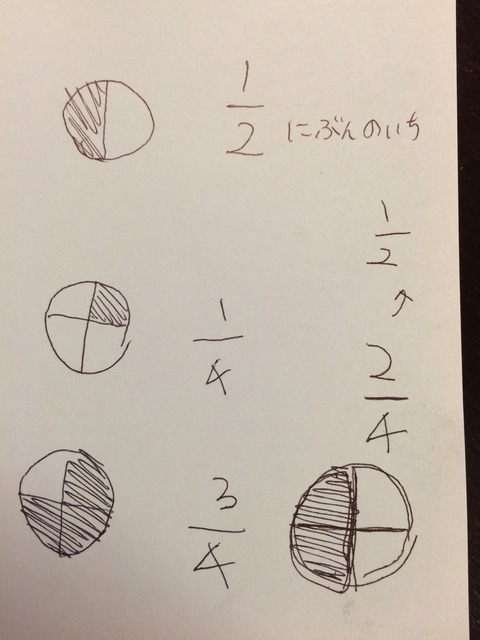 1/2 にぶんのいち
1/2
↗
2/4
1/4
3/4